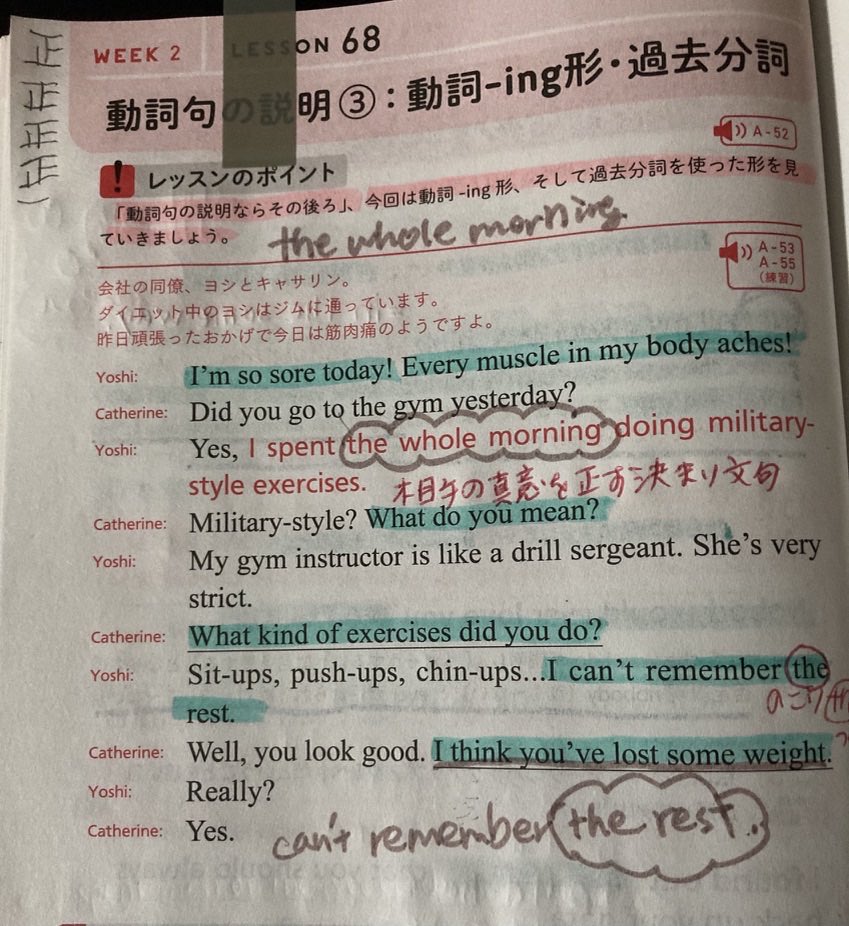 正
正
正
正
WEEK 2 LESSON 68
動詞句の説明③:動詞-ing形・過去分詞
A-52
! レッスンのポイント
「動詞句の説明ならその後ろ」、今回は動詞-ing形、そして過去分詞を使った形を見
ていきましょう。
the whole morning.
A-53
A-55
(練習)
会社の同僚、ヨシとキャサリン。
ダイエット中のヨシはジムに通っています。
昨日頑張ったおかげで今日は筋肉痛のようですよ。
Yoshi: I'm so sore today! Every muscle in my body aches!
Catherine: Did you go to the gym yesterday?
Yoshi: Yes, I spent the whole morning doing military-
style exercises.
の真意を正す決まり文句
Catherine: Military-style? What do you mean?
Yoshi: My gym instructor is like a drill sergeant. She's very
strict.
Catherine: What kind of exercises did you do?
Yoshi: Sit-ups, push-ups, chin-ups...I can't remember the
rest.
のこり
Catherine: Well, you look good. I think you've lost some weight.
Yoshi: Really?
Catherine: Yes.
can't remember the rest..